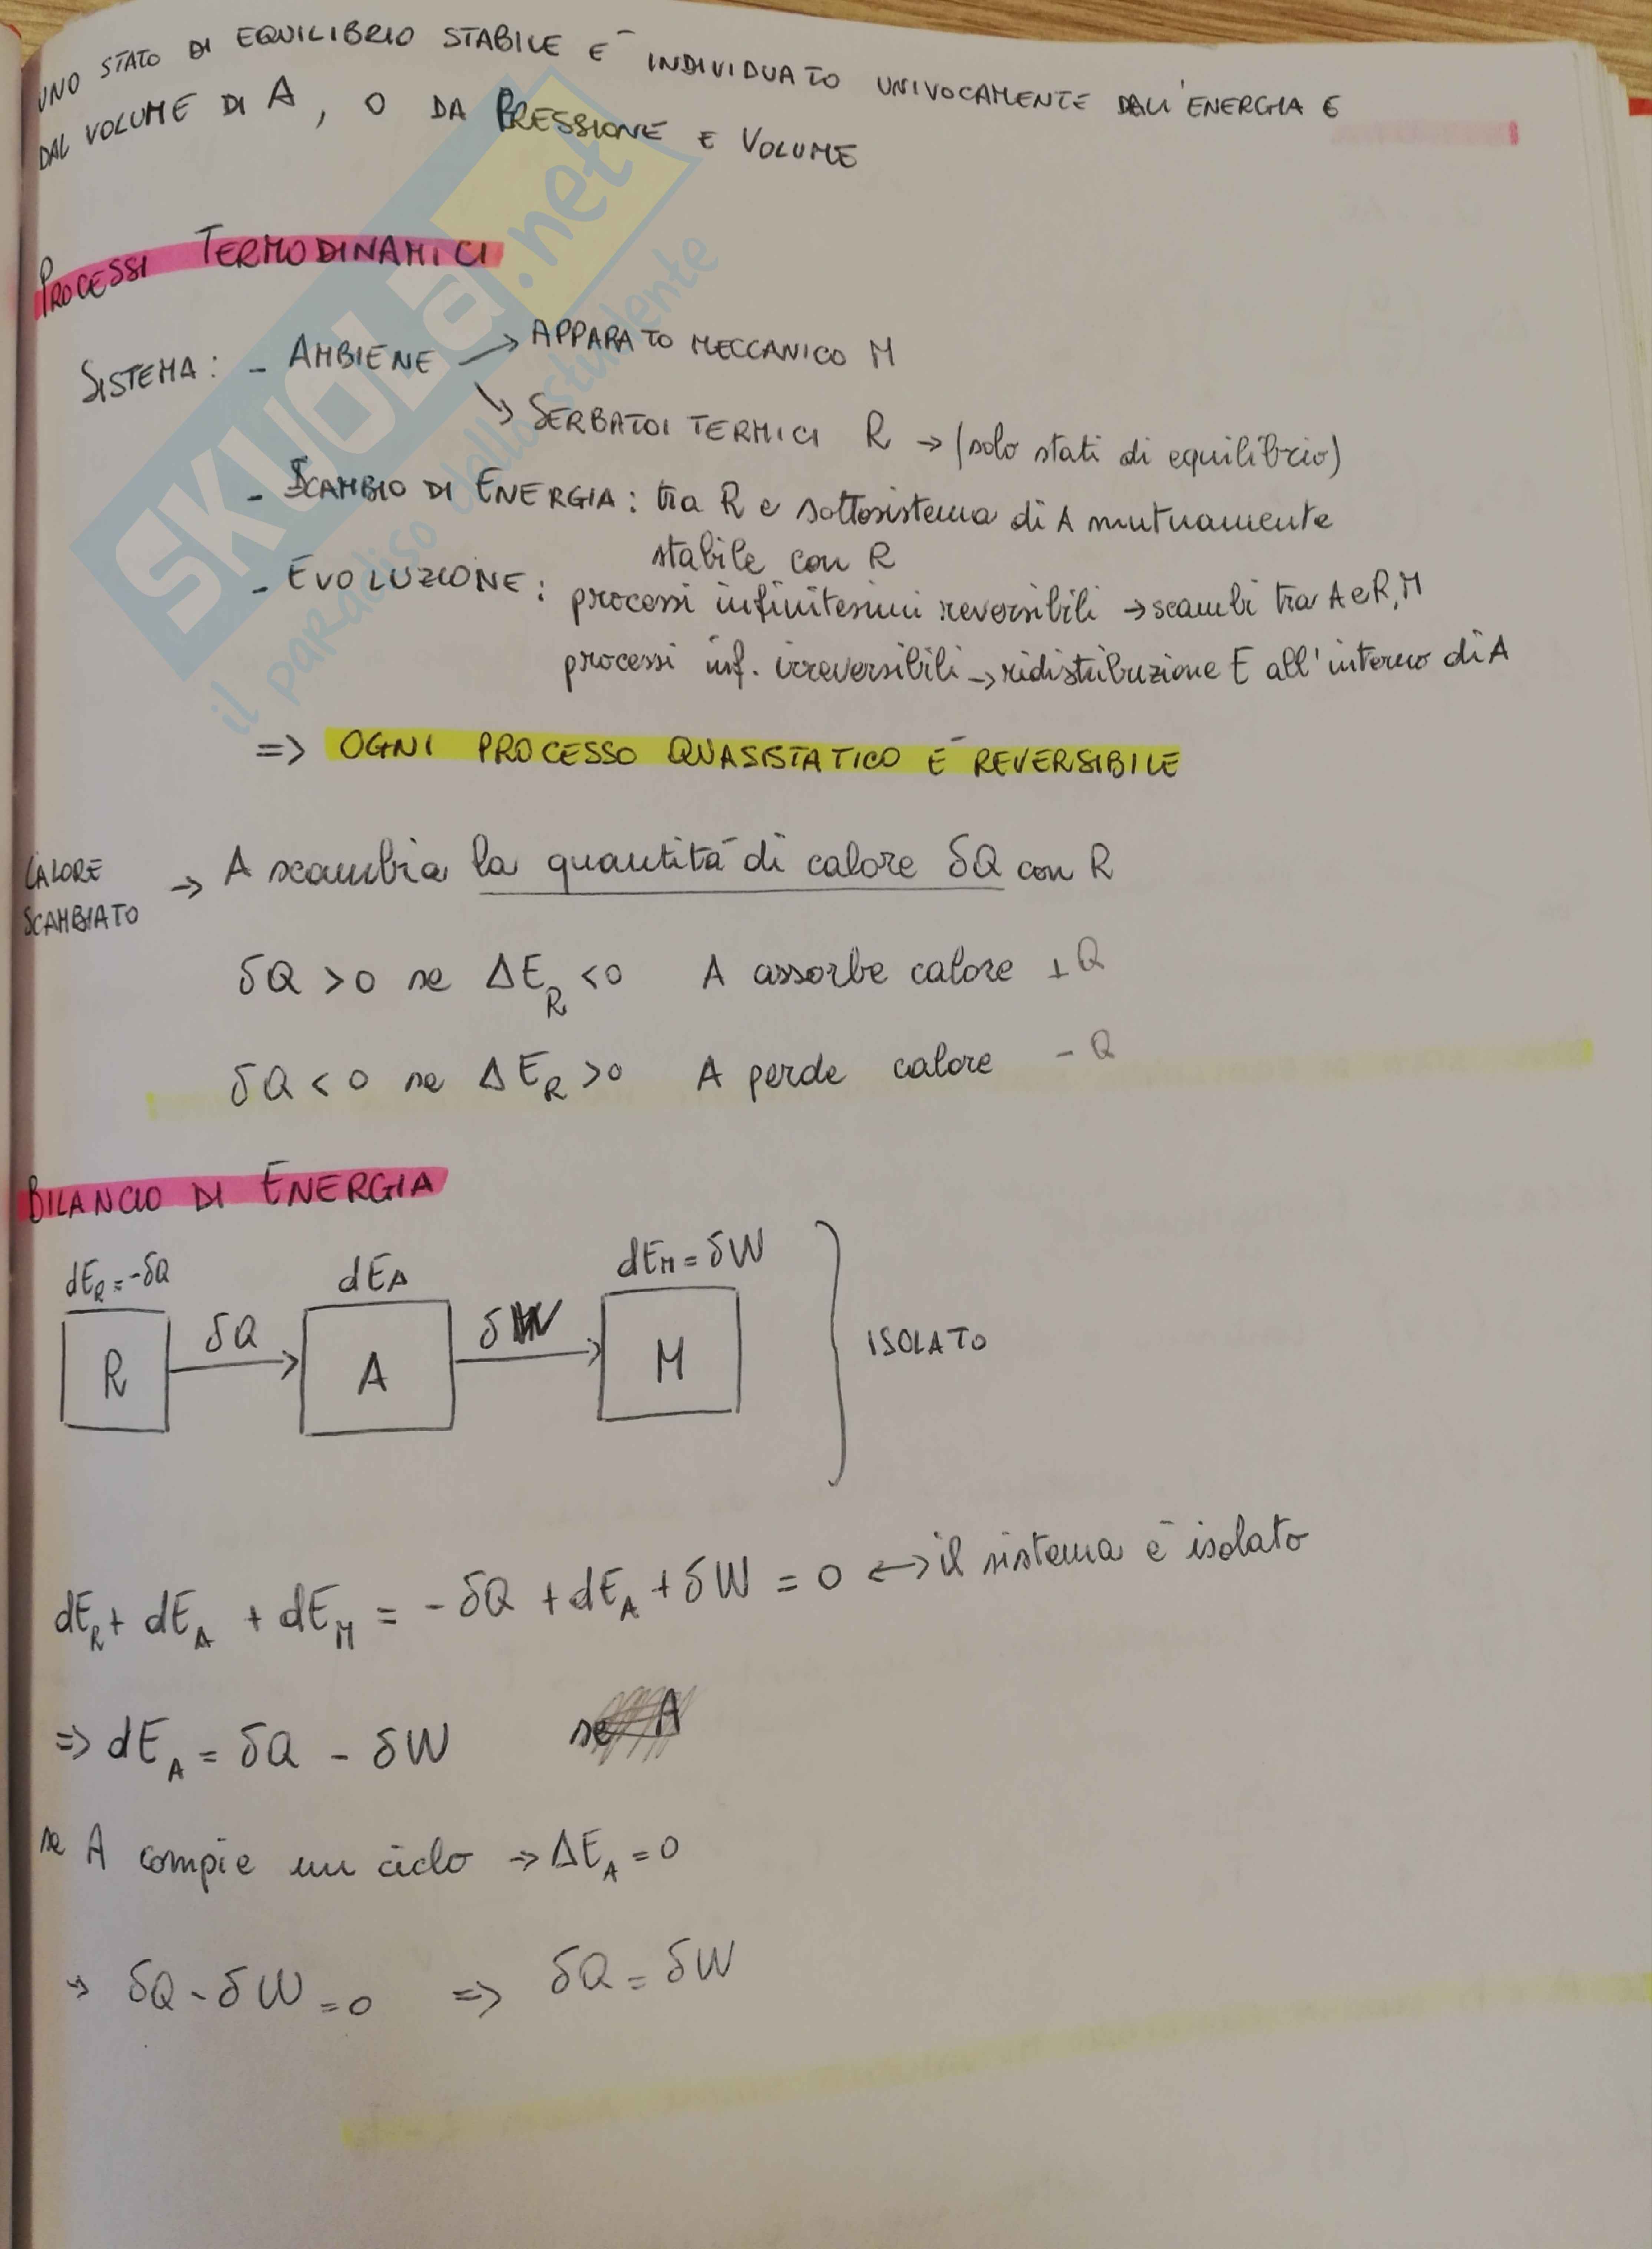 UNO STATO DI EQUILIBRIO STABILE E' INDIVIDUATO UNIVOCAMENTE DALL'ENERGIA E
DAL VOLUME DI A, O DA PRESSIONE E VOLUME
PROCESSI TERMODINAMICI
SISTEMA: - AMBIENE → APPARATO MECCANICO M
↘ SERBATOI TERMICI R → (solo stati di equilibrio)
- SCAMBIO DI ENERGIA: tra R e sottosistema di A mutuamente
stabile con R
- EVOLUZIONE: processi infinitesimi reversibili → scambi tra A e R, M
processi inf. irreversibili → ridistribuzione E all'interno di A
=> OGNI PROCESSO QUASISTATICO E' REVERSIBILE
CALORE
SCAMBIATO → A scambia la quantità di calore δQ con R
δQ > 0 se ΔE_R < 0 A assorbe calore +Q
δQ < 0 se ΔE_R > 0 A perde calore -Q
BILANCIO DI ENERGIA
dE_R = -δQ dE_A dE_M = δW
δQ δW
R A M ISOLATO
dE_R + dE_A + dE_M = -δQ + dE_A + δW = 0 ↔ il sistema è isolato
=> dE_A = δQ - δW se A
se A compie un ciclo → ΔE_A = 0
→ δQ - δW = 0 => δQ = δW
SKUOLA.net
il paradiso dello studente